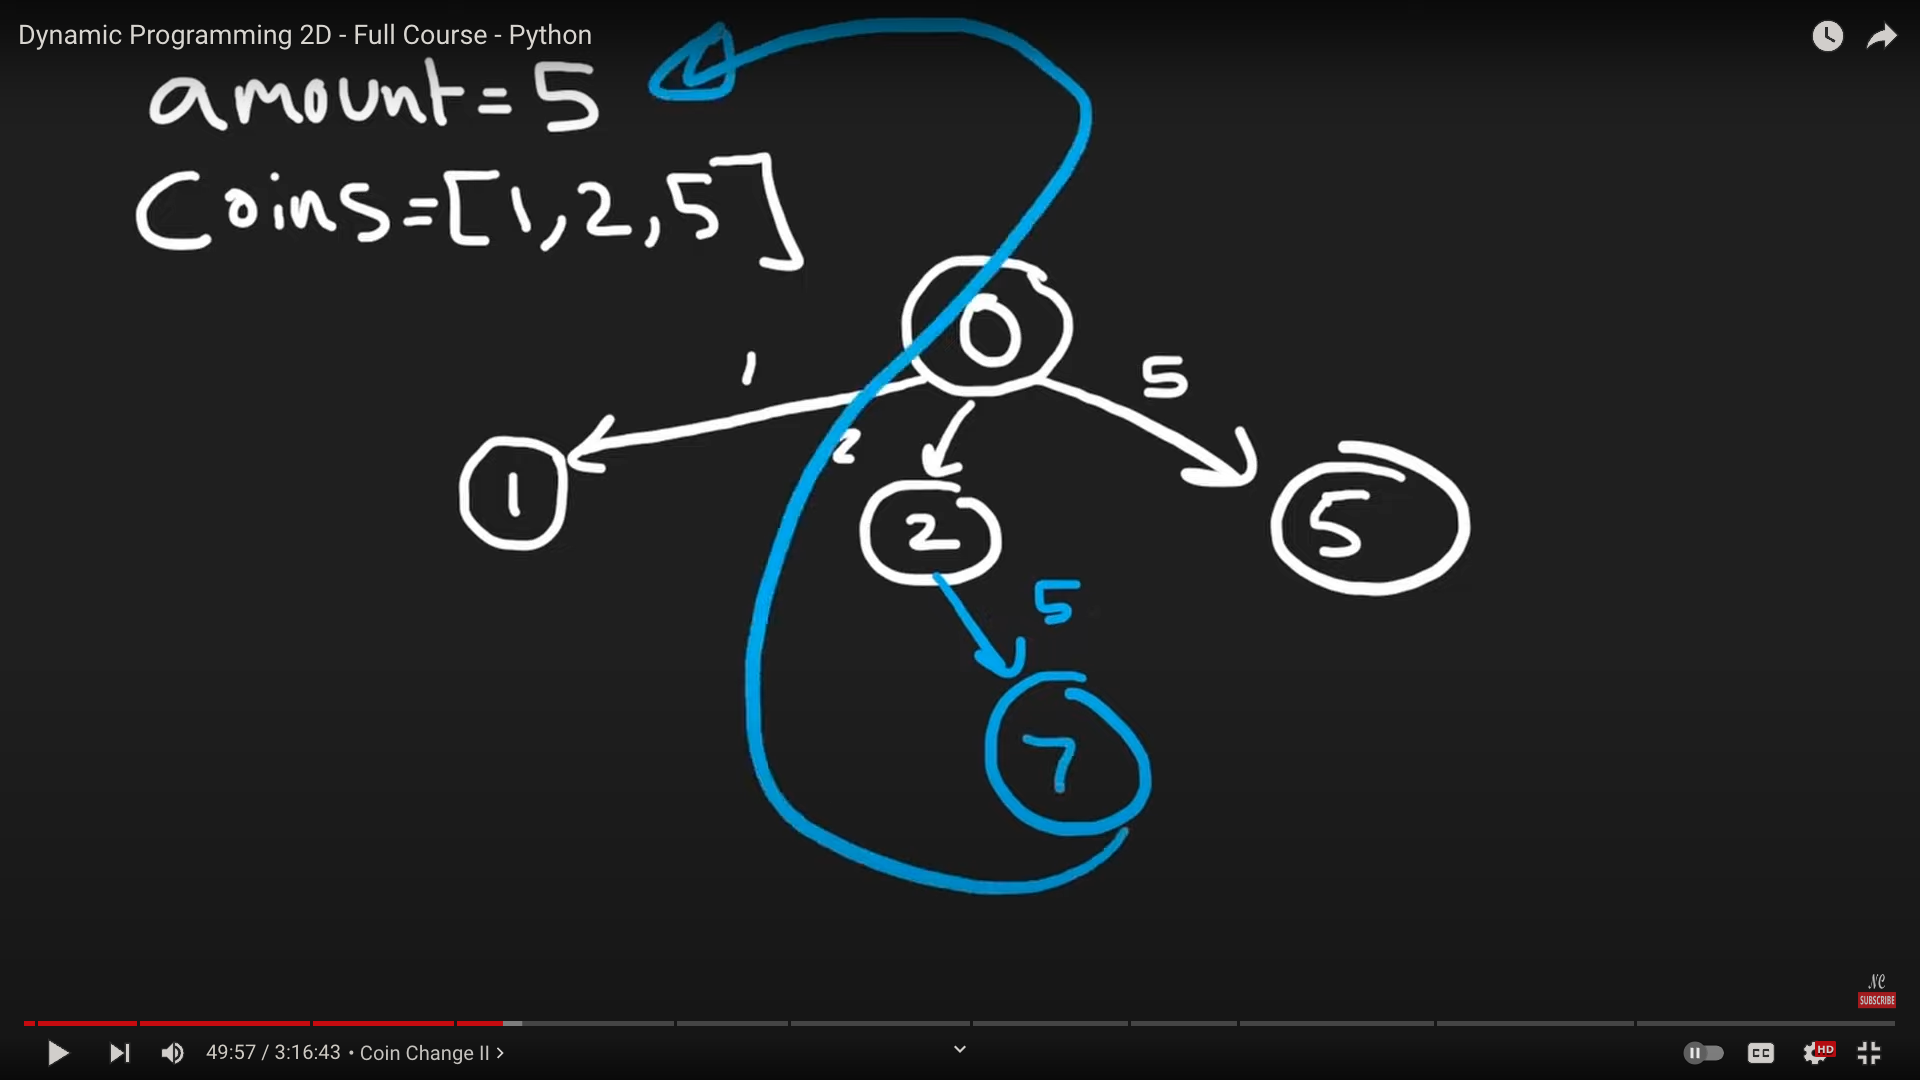 Dynamic Programming 2D - Full Course - Python
amount=5
Coins=[1,2,5]
0
1
5
2
1
2
5
5
7
NC
SUBSCRIBE
49:57 / 3:16:43 • Coin Change II >
CC
HD